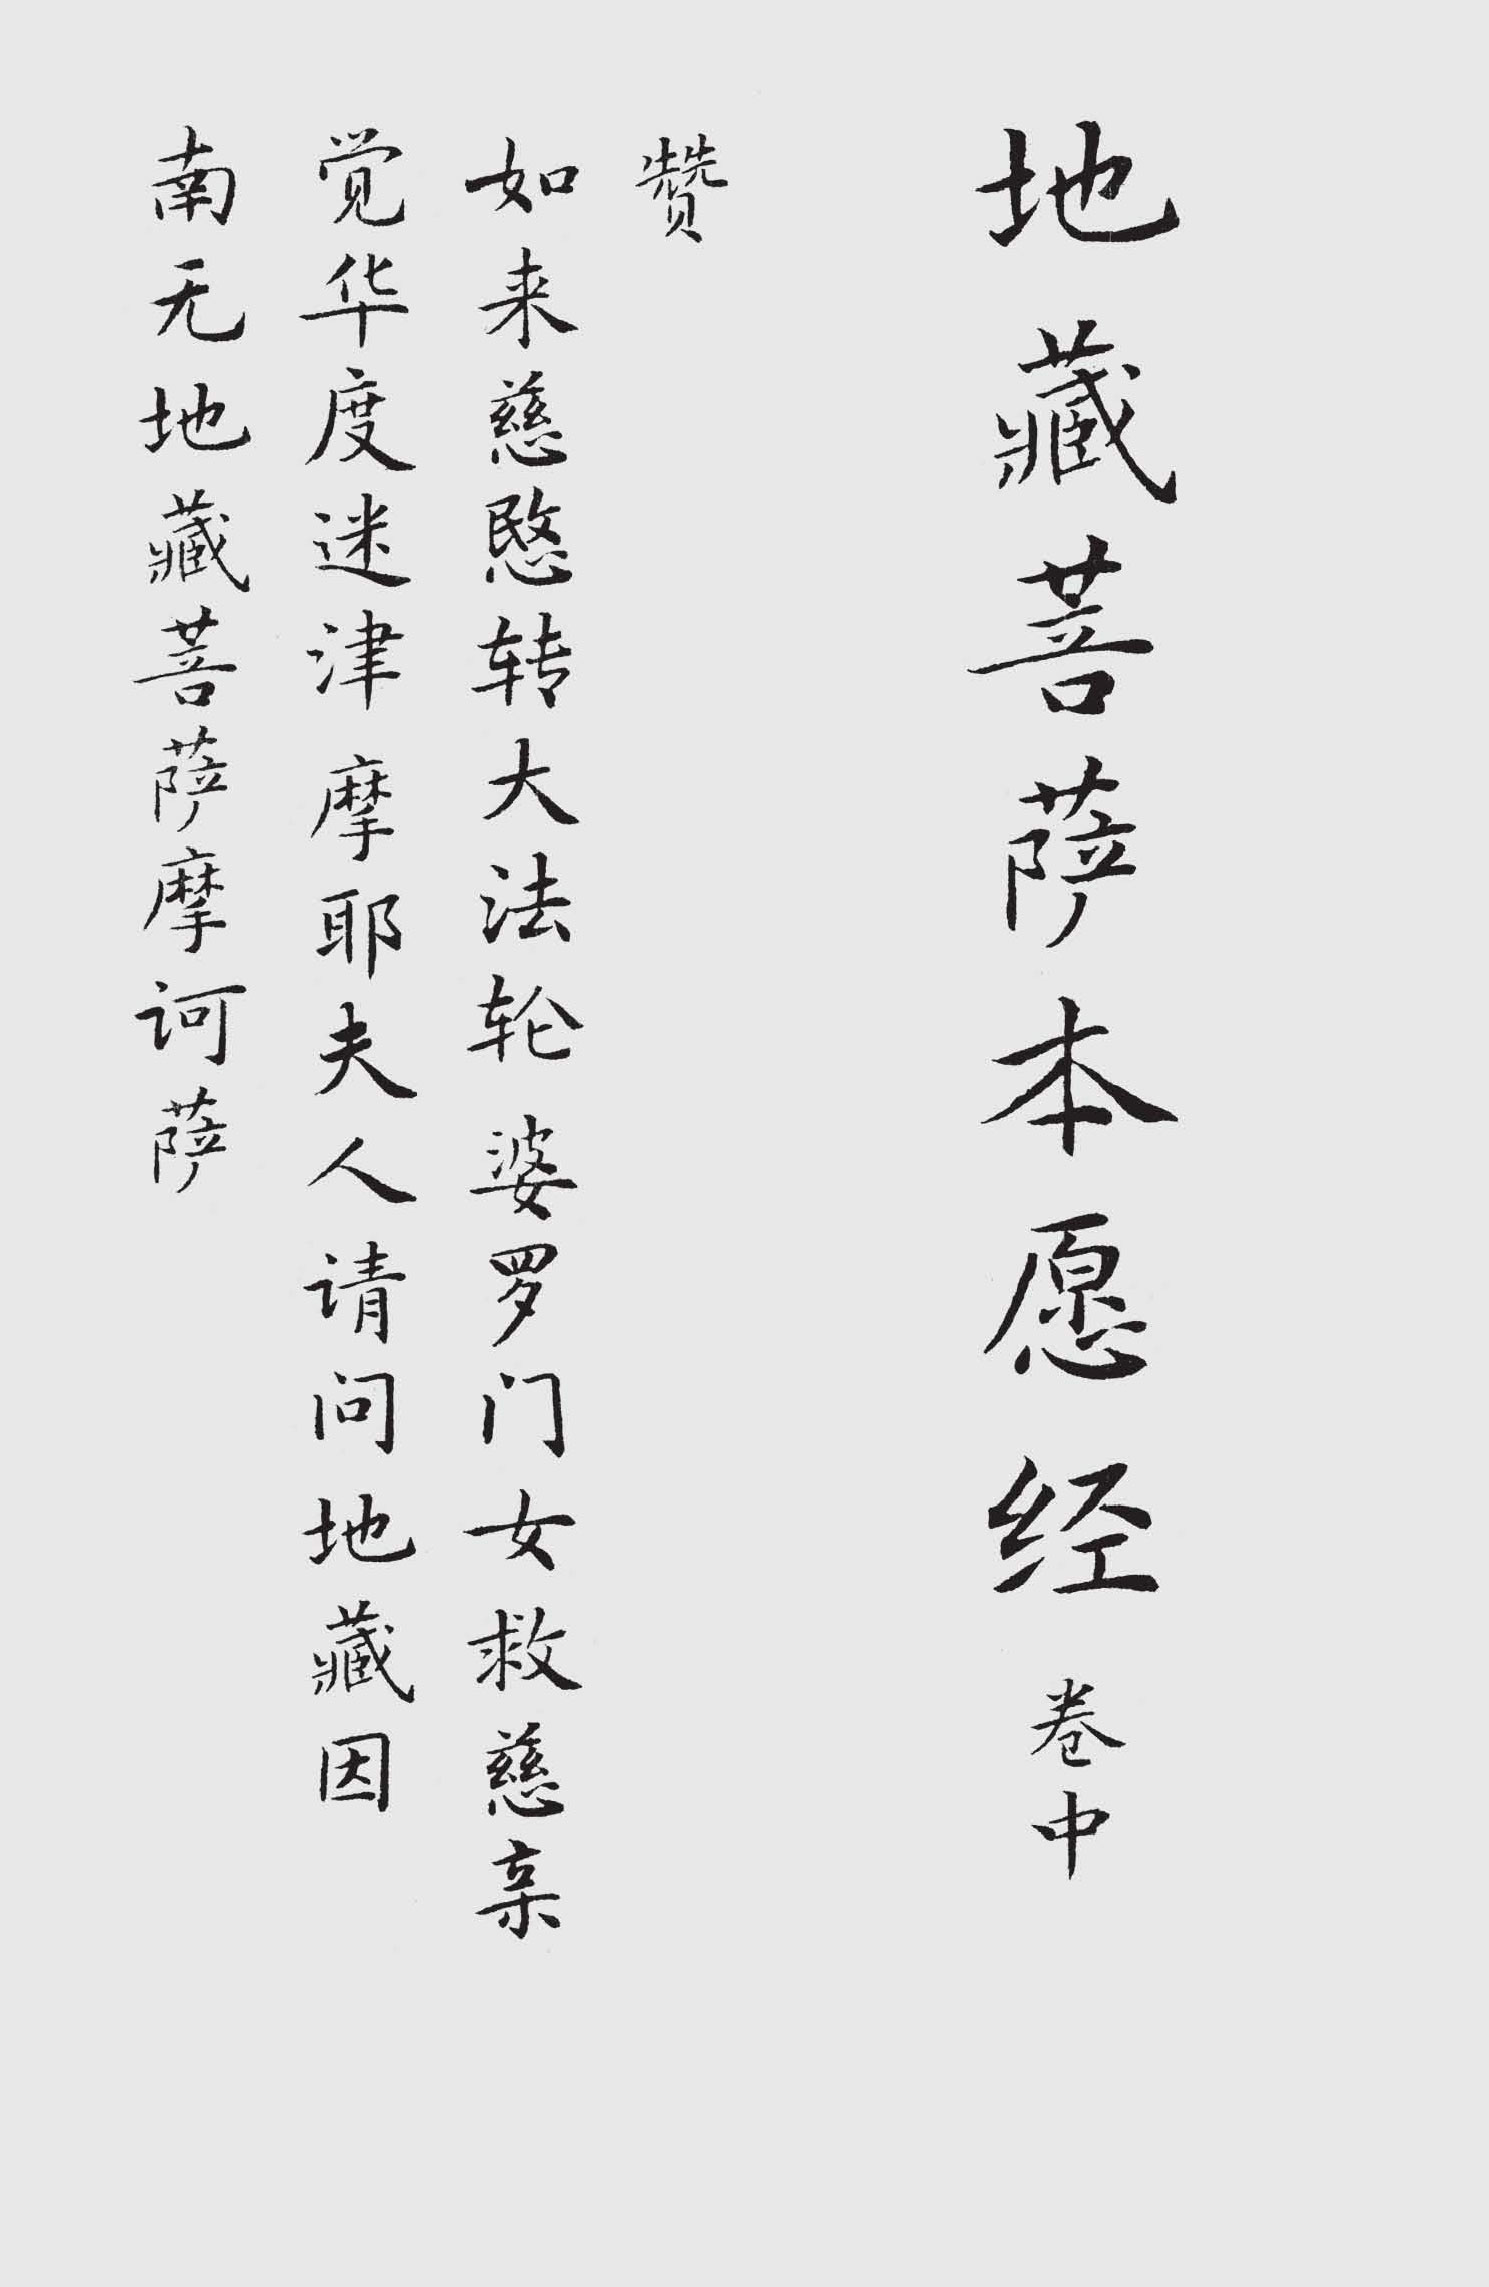 地藏菩萨本愿经 卷中
赞
如来慈愍转大法轮 婆罗门女救慈亲
觉华度迷津 摩耶夫人请问地藏因
南无地藏菩萨摩诃萨